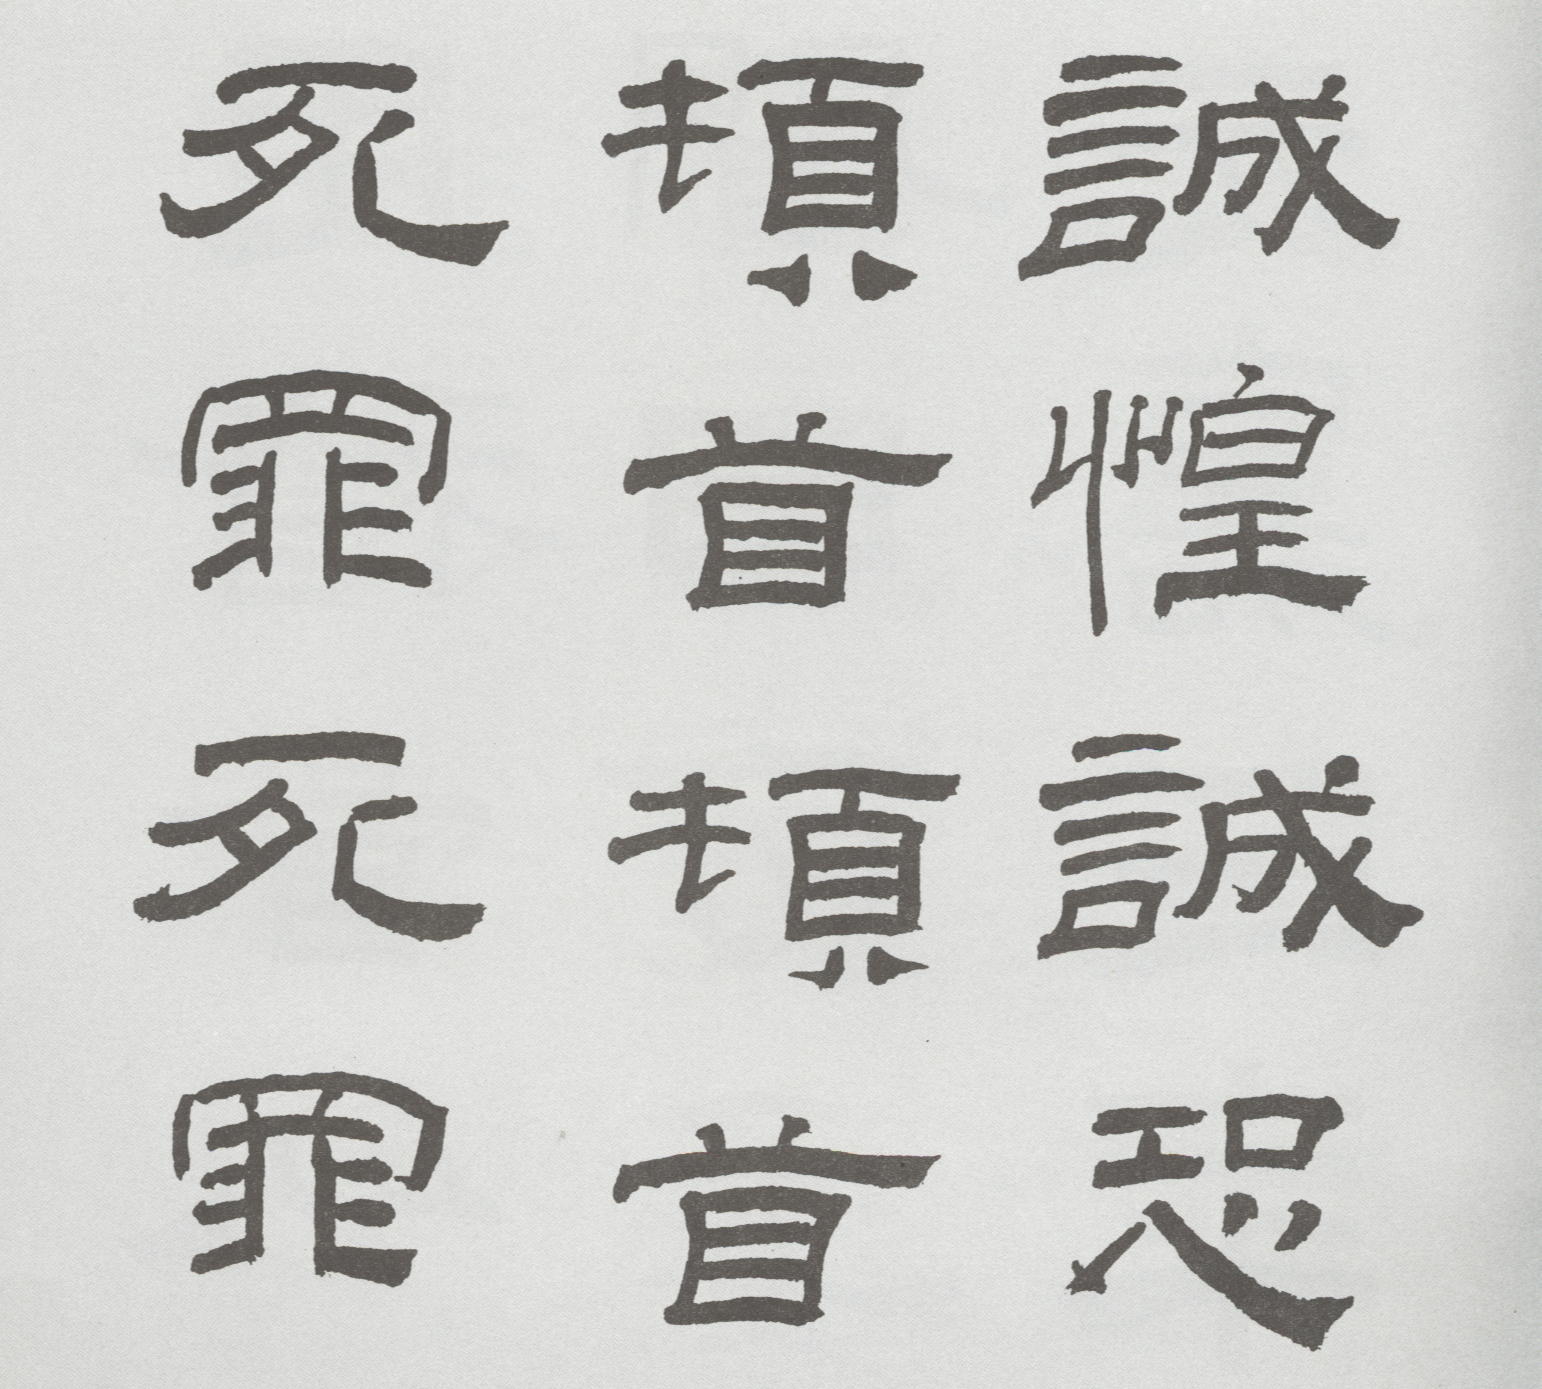 誠惶誠恐
頓首頓首
死罪死罪